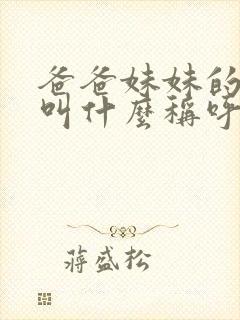 爸爸妹妹的
叫什麼稱呼
蔣盛松